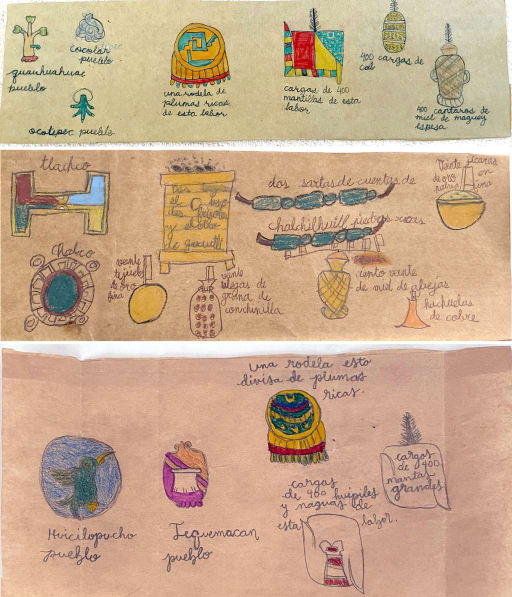 quauhuahuac
pueblo
cocolar
pueblo
ocotepec pueblo
una rodela de
plumas ricas
de esta labor
cargas de 400
mantillas de esta
labor
400 cargas de
cal
400 cantaros de
miel de maguey
espesa
tlachco
dos sartas de cuentas de
chalchihuitl piedras ricas
Veinte jicaras
de oro en
fina
Chalco
veinte
tejuelos
de oro
fina
veinte
talegas de
grana de
conchinilla
ciento veinte
de miel de abejas
hachuelas
de cobre
una rodela esta
divisa de plumas
ricas.
Huicilopucho
pueblo
Tequemacan
pueblo
cargas
de 400 huipiles
y naguas de
esta labor.
cargos
de 400
mantas
grandes